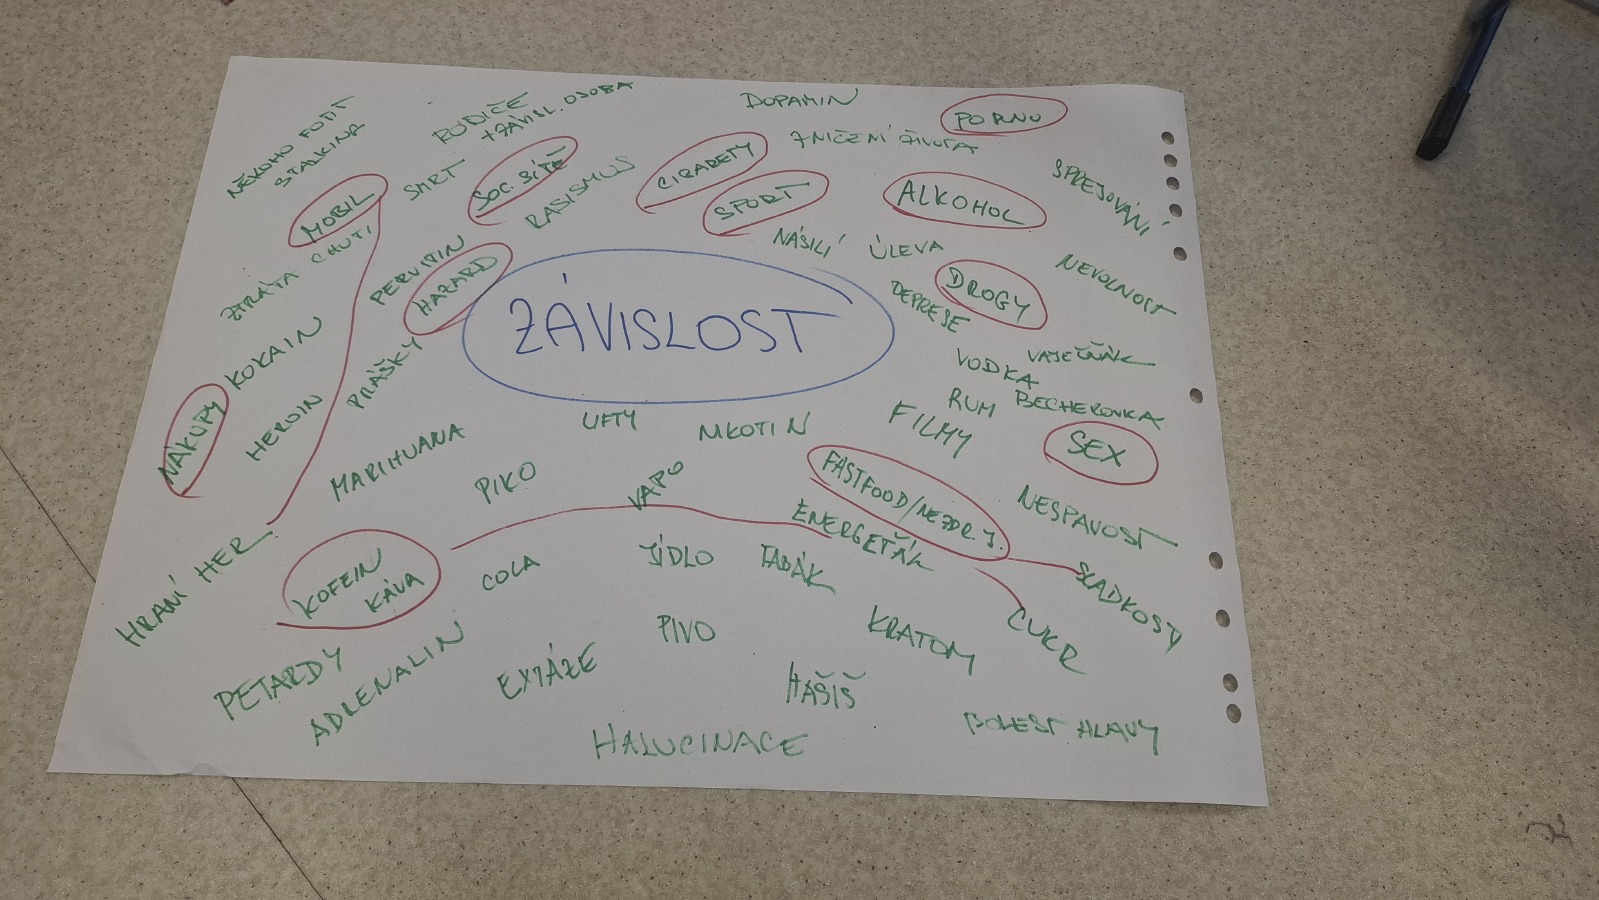 DOPAMIN
PORNO
RODIČE
+ ZÁVISL. OSOBA
NĚKOHO FOTIT
STALKING
ZNIČENÍ ŽIVOTA
SMRT
SOC. SÍTĚ
RASISMUS
CIGARETY
SPORT
ALKOHOL
SPREJOVÁNÍ
MOBIL
ZTRÁTA CHUTI
PERVITIN
HAZARD
NÁSILÍ
ÚLEVA
DROGY
NEVOLNOST
DEPRESE
ZÁVISLOST
KOKAIN
PRÁŠKY
VODKA
VAJEČŇÁK
RUM
BECHEROVKA
NÁKUPY
HEROIN
MARIHUANA
LIFTY
NIKOTIN
FILMY
SEX
PIKO
VAPO
FASTFOOD/NEZDR. J.
NESPAVOST
ENERGEŤÁK
HRANÍ HER
KOFEIN
KÁVA
COLA
JÍDLO
TABÁK
SLADKOSTI
CUKR
PIVO
KRATOM
PETARDY
ADRENALIN
EXTÁZE
HAŠIŠ
HALUCINACE
BOLEST HLAVY